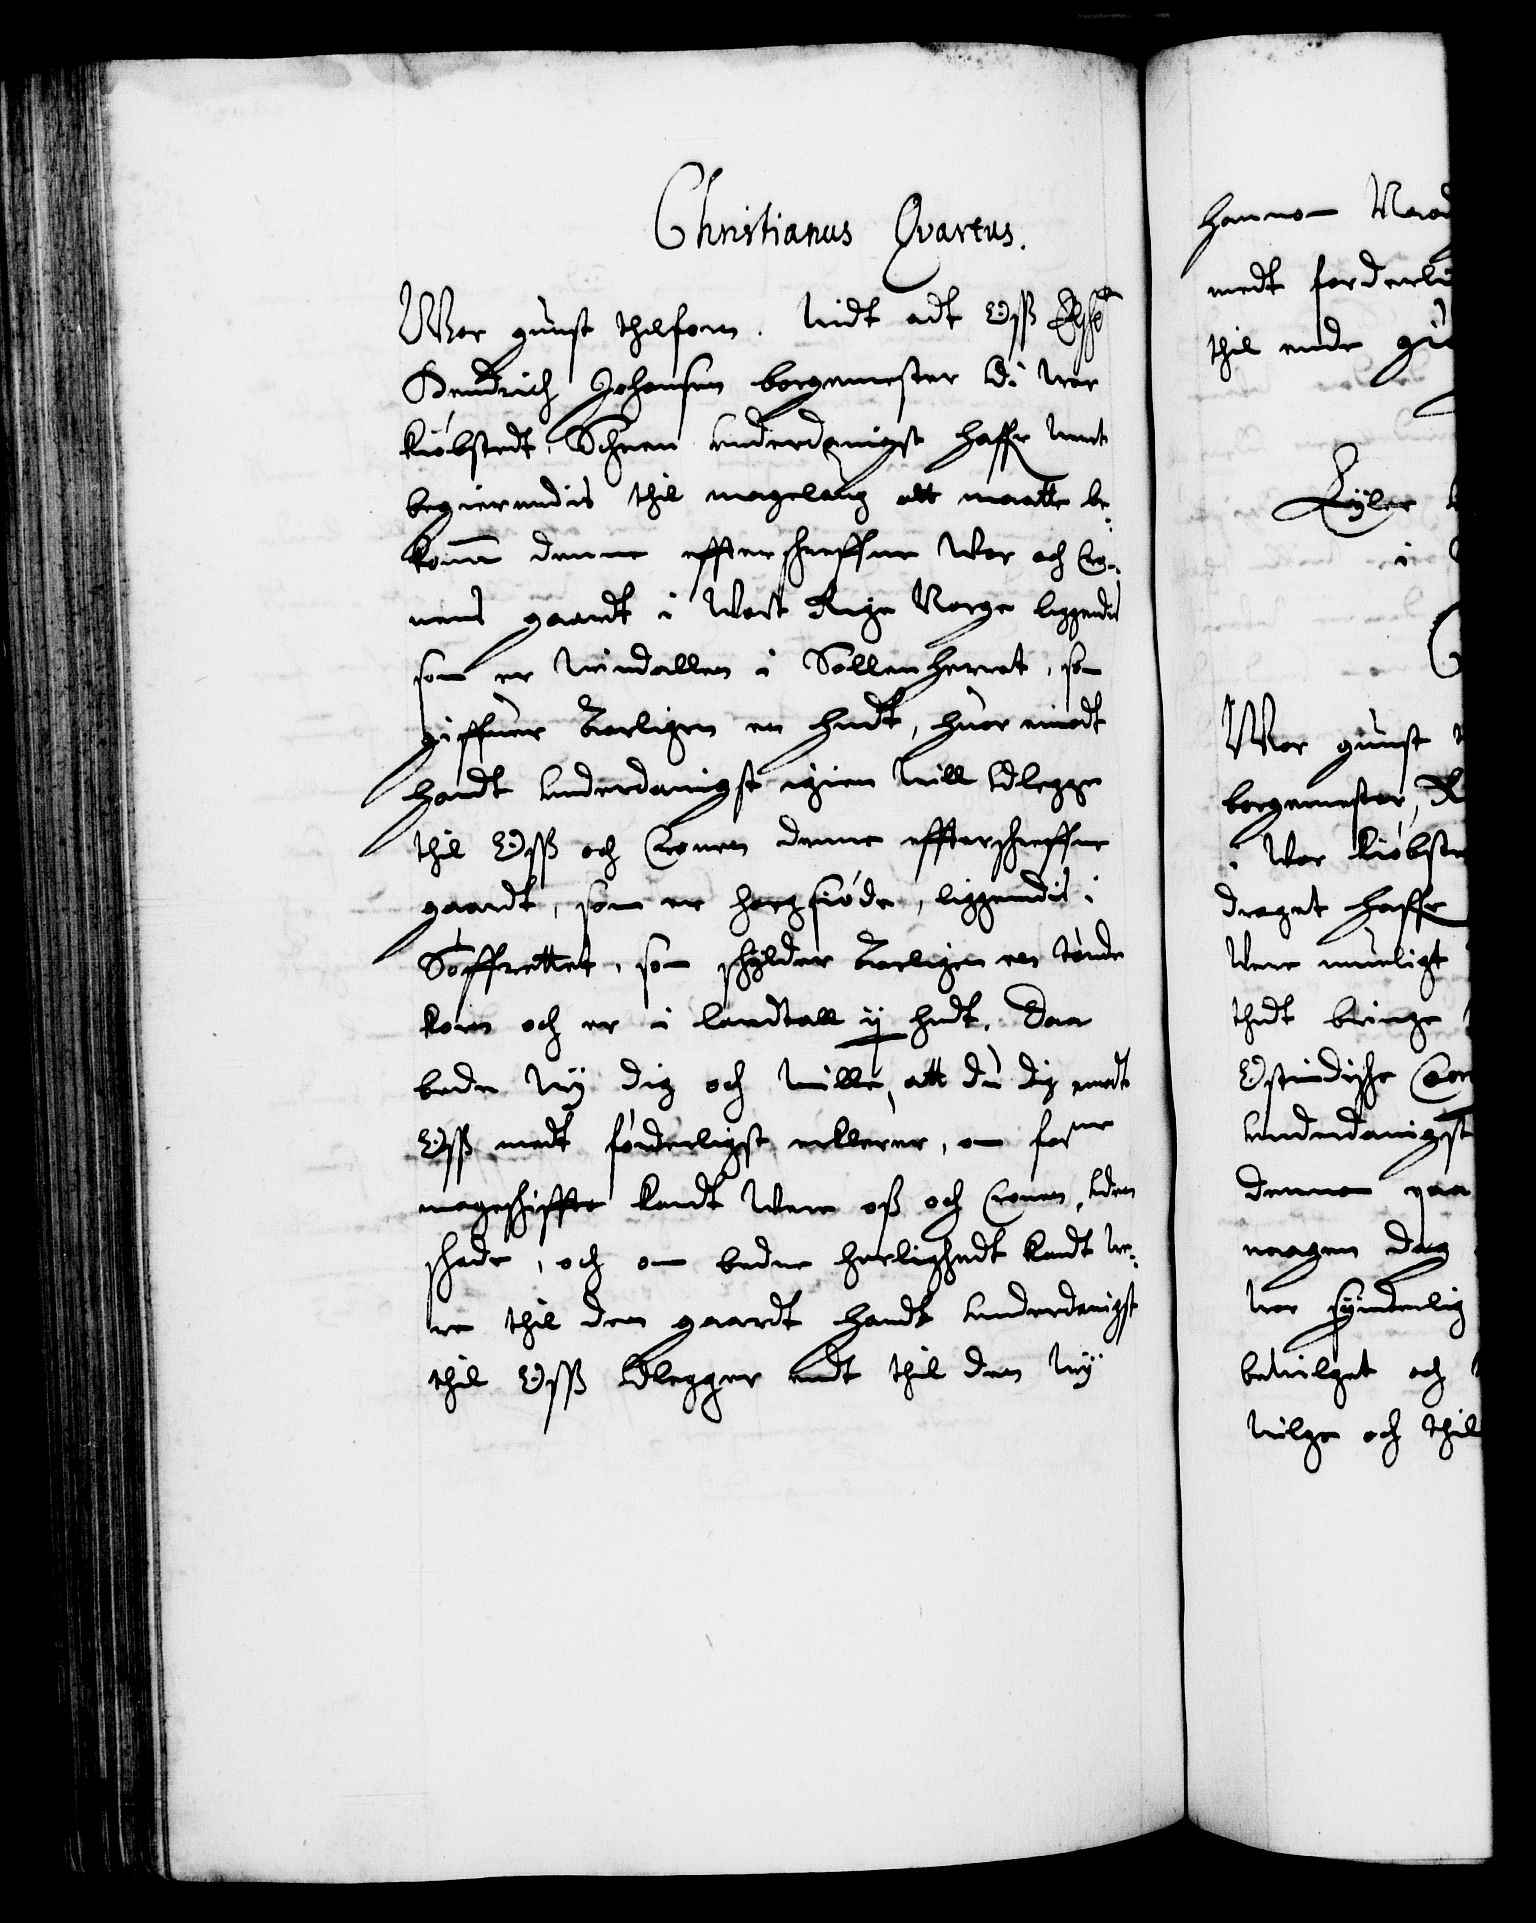 Christianus Qvartus.
Wor gunst thilforn. Vidt adt Oss Elsche
Hendrich Johansen borgemester Udi wor
kiøbstedt Scheen underdanigst haffr veret
begierendis thil magelaug att maatte be-
komme denne effterschreffne Wor och Cro-
nens gaardt i Wort Rige Norge liggendis
som er Vindallen i Sollenherret, som
giffuer Aarligen en hudt, huor imodt
handt underdanigst igien vill Udlegge
thil Oss och Cronen denne effterschreffne
gaardt, som er horgsiøde, liggendis i
Søffrettet, som schylder Aarligen en tønde
korn och er i landtall ij hudt. Daa
bede vy dig och ville, att du dig medt
Oss medt forderligst erklerer, om forne
mageschiffte kandt were oss och Cronen, uden
schade, och om bedre herlighedt kandt ve-
re thil den gaardt handt underdanigst
thil Oss Udlegger endt thil den vy
hannom
medt forderli
thil ende
Eyler
i
Wor gunst
borgemester, R
i Wor kiøbste
draget haffr
Were mueligt
thedt bringe
Ostindische Com
underdanigst
dennom paa
nogen dag
wor synderlig
bevilget och
vilge och thil